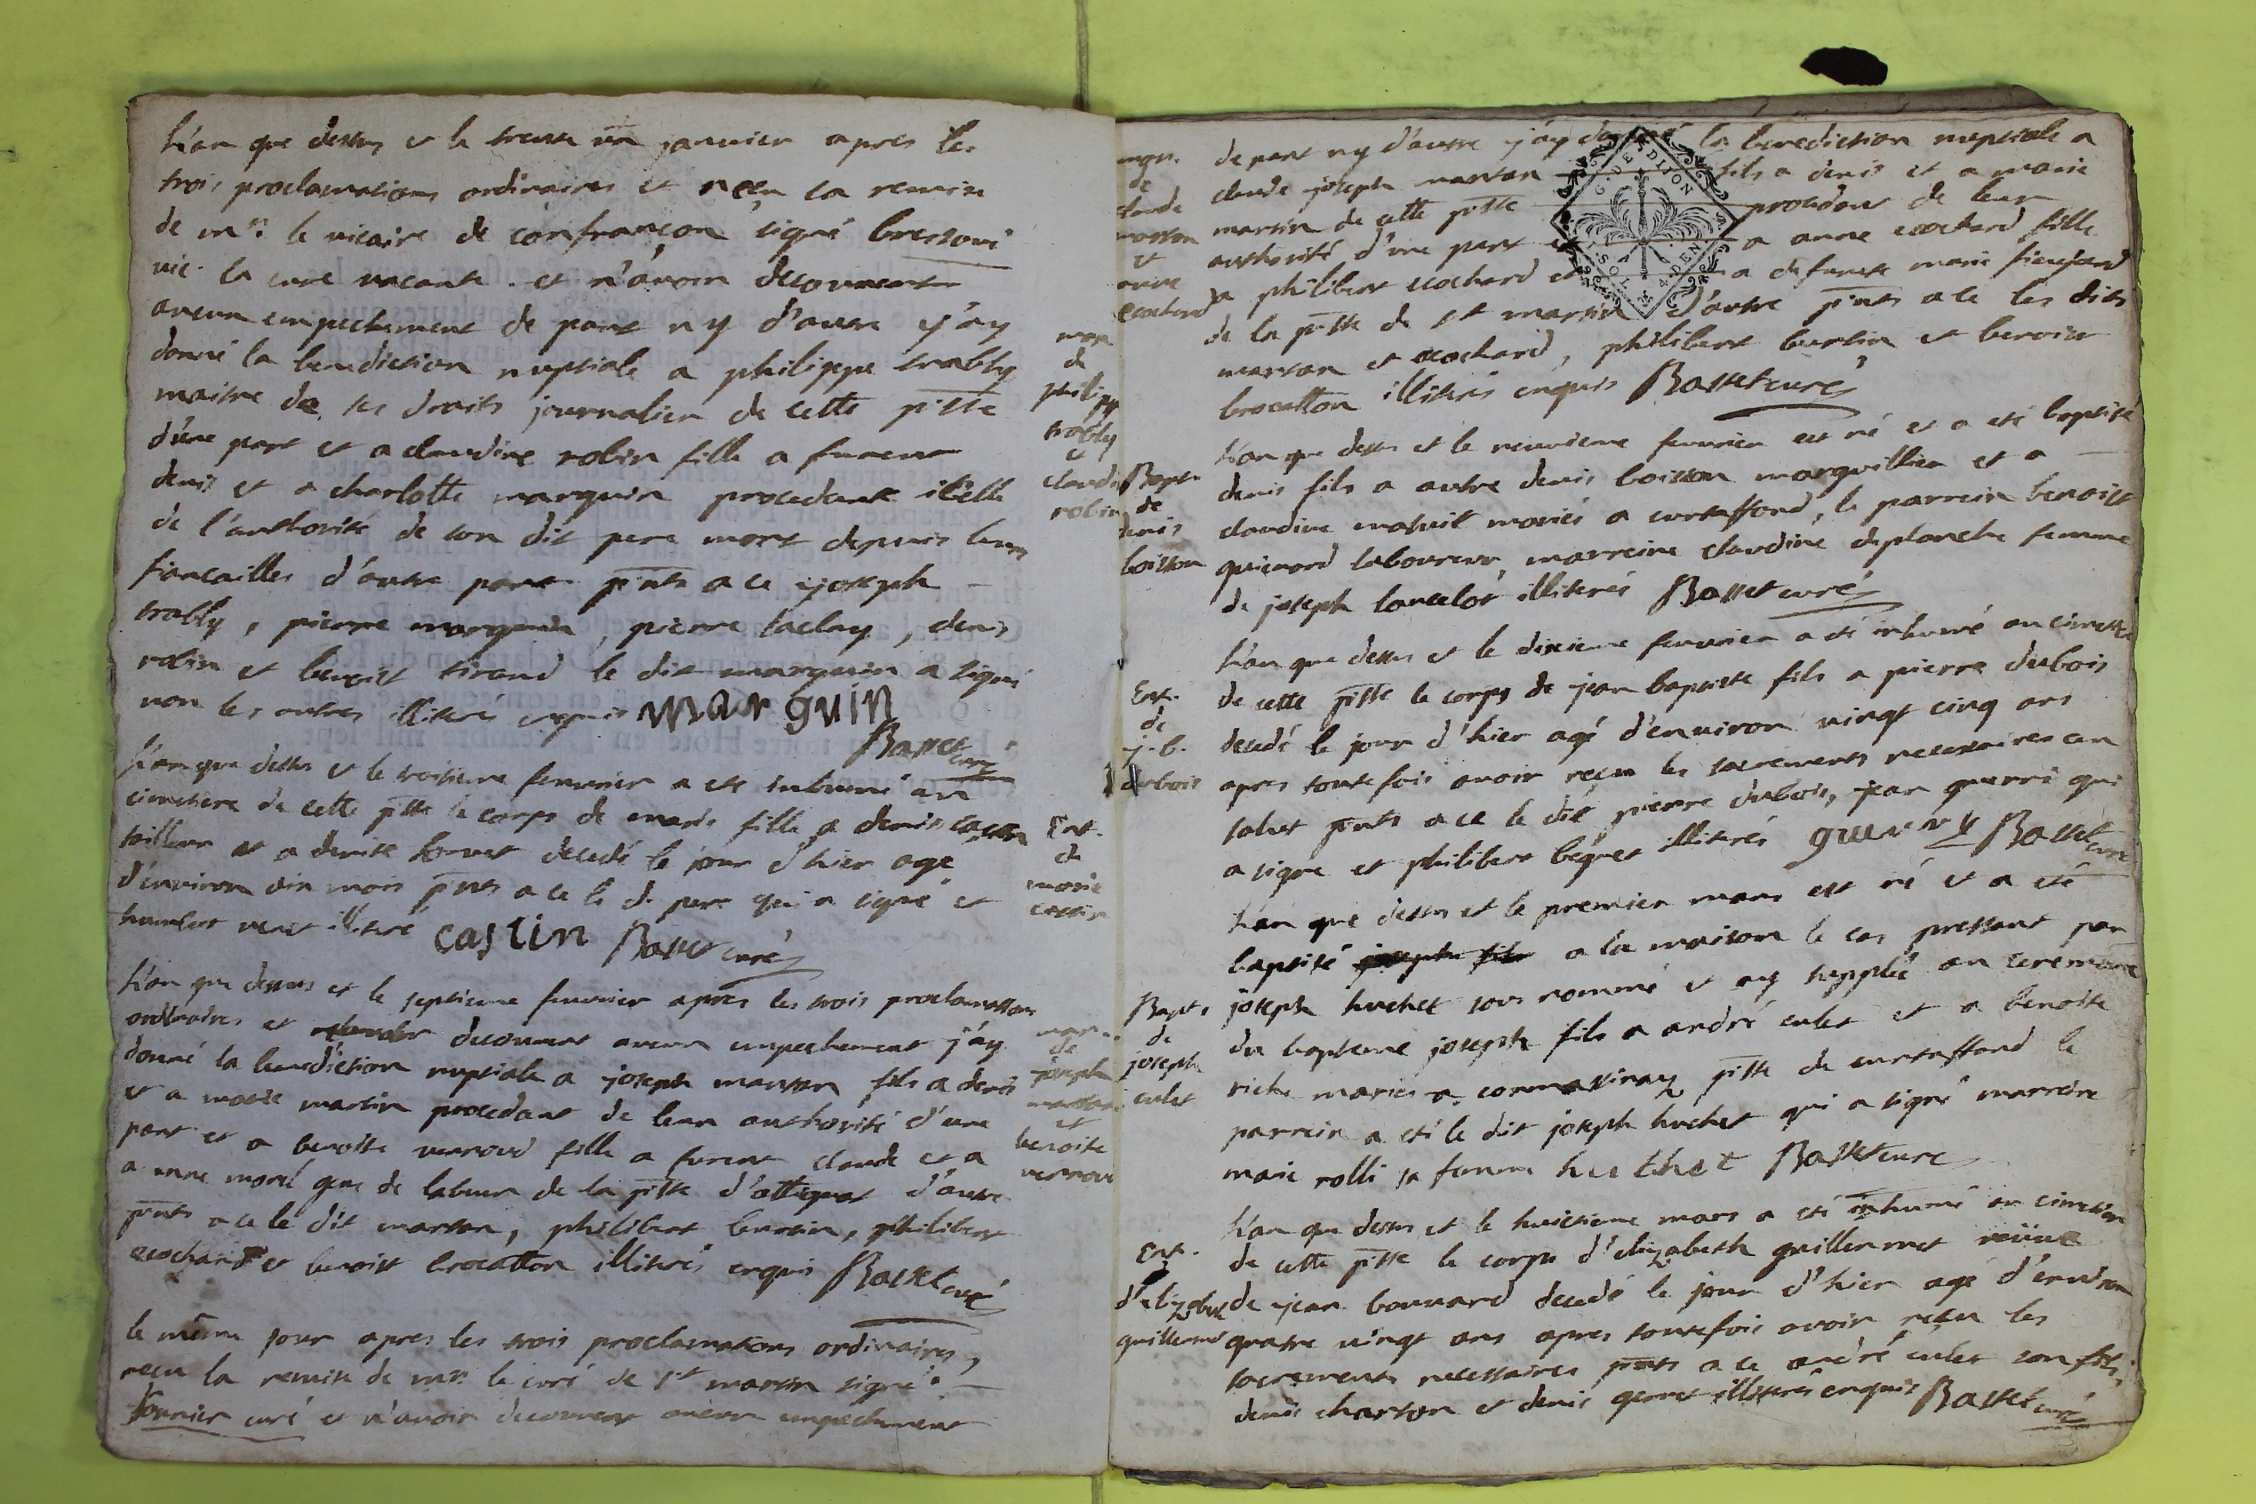 l'an que dessus et le trente un janvier apres les
trois proclamations ordinaires et reçu la remise
de mr. le vicaire de confrançon signé
vic. la cure vacante et n'avoir decouvert
aucun empechement de part ny d'autre j'ay
donné la benediction nuptiale a philippe trably
maitre de ses droits journalier de cette psse
d'une part et a claudine robin fille a furent
denis et a charlotte marguin procedant icelle
de l'authorité de son dit pere mort depuis leurs
fiancailles d'autre part pnts a ce joseph
trably, pierre marguin, pierre laclay, denis
robin et benoit tirand le dit marguin a signé
non les autres illiterés enquis marguin
Basset curé
mar.
de
philippe
trably
et
claudine
robin
l'an que dessus et le troisieme fevrier a eté inhumé au
cimetiere de cette psse le corps de marie fille a denis castin
tailleur et a denise decedé le jour d'hier agé
d'environ dix mois pnts a ce le d. pere qui a signé et
humbert illiteré castin Basset curé
Ent.
de
marie
castin
l'an que dessus et le septieme fevrier apres les trois proclamations
ordinaires et decouvert aucun empechement j'ay
donné la benediction nuptiale a joseph marson fils a denis
et a marie martin procedant de leur authorité d'une
part et a benoite verroud fille a furent claude et a
a anne morel gens de labeur de la psse d'attignat d'autre
pnts a ce le dit marson, philibert bertin, philibert
ecochard et benoist brocatton illiterés enquis Basset curé
mar.
de
joseph
marson
et
benoite
verroud
le même jour apres les trois proclamations ordinaires,
reçu la remise de mr. le curé de st martin signé
fournier curé et n'avoir decouvert aucun empechement
de part ny d'autre j'ay donné la benediction nuptiale a
claude joseph marson fils a denis et a marie
martin de cette psse procedant de leur
authorité d'une part et a anne ecochard fille
a philibert ecochard et a defunte marie
de la psse de st martin d'autre pnts a ce les dits
marson et ecochard, philibert bertin et benoist
brocatton illiterés enquis Basset curé
mar.
de
claude
marson
et
anne
ecochard
G. DE DIJON
SOL 4 DEN
l'an que dessus et le neuvieme fevrier est né et a eté baptisé
denis fils a autre denis boisson marguillier et a
claudine mariés a curtaffond, le parrein benoist
quinard laboureur, marreine claudine deplanche femme
de joseph lancelot illiterés Basset curé
Bapt.
de
denis
boisson
l'an que dessus et le dixieme fevrier a eté inhumé au cimetiere
de cette psse le corps de jean baptiste fils a pierre dubois
decedé le jour d'hier agé d'environ vingt cinq ans
apres toutefois avoir reçu les sacrements necessaires au
salut pnts a ce le dit pierre dubois, jean guerri qui
a signé et philibert illiterés guerry Basset curé
Ent.
de
j. b.
dubois
l'an que dessus et le premier mars est né et a eté
baptisé joseph fils a la maison le cas pressant par
joseph huchet sous nommé et ay supplée au ceremonie
du bapteme joseph fils a andré culet et a benoite
riche mariés a cormassinay psse de curtaffond le
parrein a eté le dit joseph huchet qui a signé marreine
marie rolli sa femme huchet Basset curé
Bapt.
de
joseph
culet
l'an que dessus et le huictieme mars a eté inhumé au cimetiere
de cette psse le corps d'elizabeth guillermet veuve
de jean bouvard decedé le jour d'hier agé d'environ
quatre vingt ans apres toutefois avoir reçu les
sacrements necessaires pnts a ce andré culet son fils,
denis charton et denis illiterés enquis Basset curé
Ent.
d'elizabet
guillermet